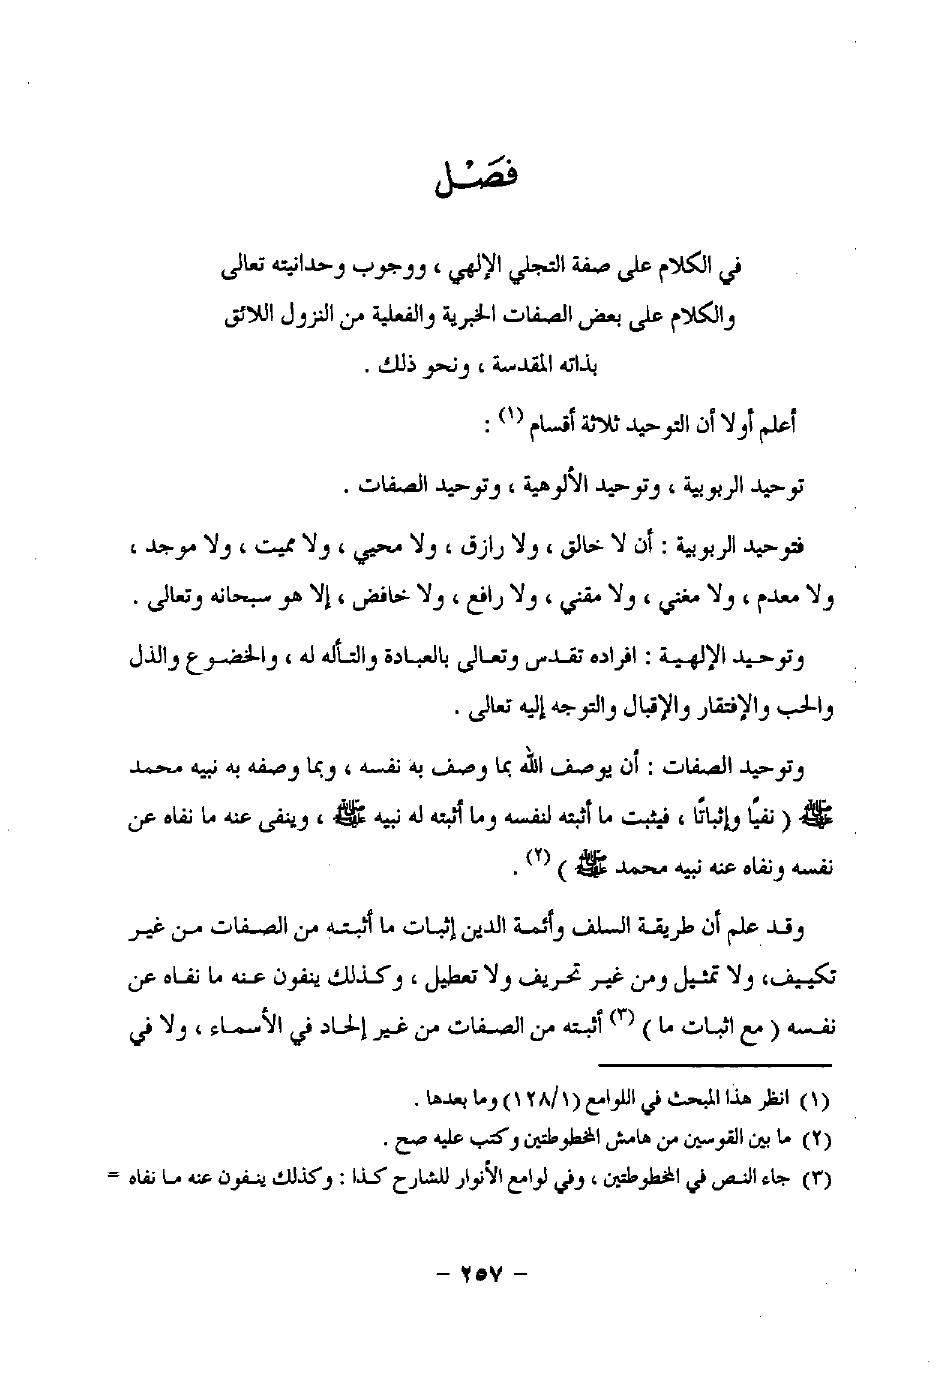 فَصَـْـل
في الكلام على صفة التجلي الإلهي ، ووجوب وحدانيته تعالى
والكلام على بعض الصفات الخبرية والفعلية من النزول اللائق
بذاته المقدسة ، ونحو ذلك .
أعلم أولا أن التوحيد ثلاثة أقسام (١) :
توحيد الربوبية ، وتوحيد الألوهية ، وتوحيد الصفات .
فتوحيد الربوبية : أن لا خالق ، ولا رازق ، ولا محيي ، ولا مميت ، ولا موجد ،
ولا معدم ، ولا مغني ، ولا مقني ، ولا رافع ، ولا خافض ، إلا هو سبحانه وتعالى .
وتوحيد الإلهية : افراده تقدس وتعالى بالعبادة والتأله له ، والخضوع والذل
والحب والإفتقار والإقبال والتوجه إليه تعالى .
وتوحيد الصفات : أن يوصف الله بما وصف به نفسه ، وبما وصفه به نبيه محمد
ﷺ ( نفيًا وإثباتًا ، فيثبت ما أثبته لنفسه وما أثبته له نبيه ﷺ ، وينفى عنه ما نفاه عن
نفسه ونفاه عنه نبيه محمد ﷺ ) (٢) .
وقد علم أن طريقة السلف وأئمة الدين إثبات ما أثبته من الصفات من غير
تكييف، ولا تمثيل ومن غير تحريف ولا تعطيل ، وكذلك ينفون عنه ما نفاه عن
نفسه ( مع اثبات ما ) (٣) أثبته من الصفات من غير إلحاد في الأسماء ، ولا في
(١) انظر هذا المبحث في اللوامع (١/١٢٨) وما بعدها .
(٢) ما بين القوسين من هامش المخطوطتين وكتب عليه صح .
(٣) جاء النص في المخطوطتين ، وفي لوامع الأنوار للشارح كذا : وكذلك ينفون عنه ما نفاه =
– ٢٥٧ –